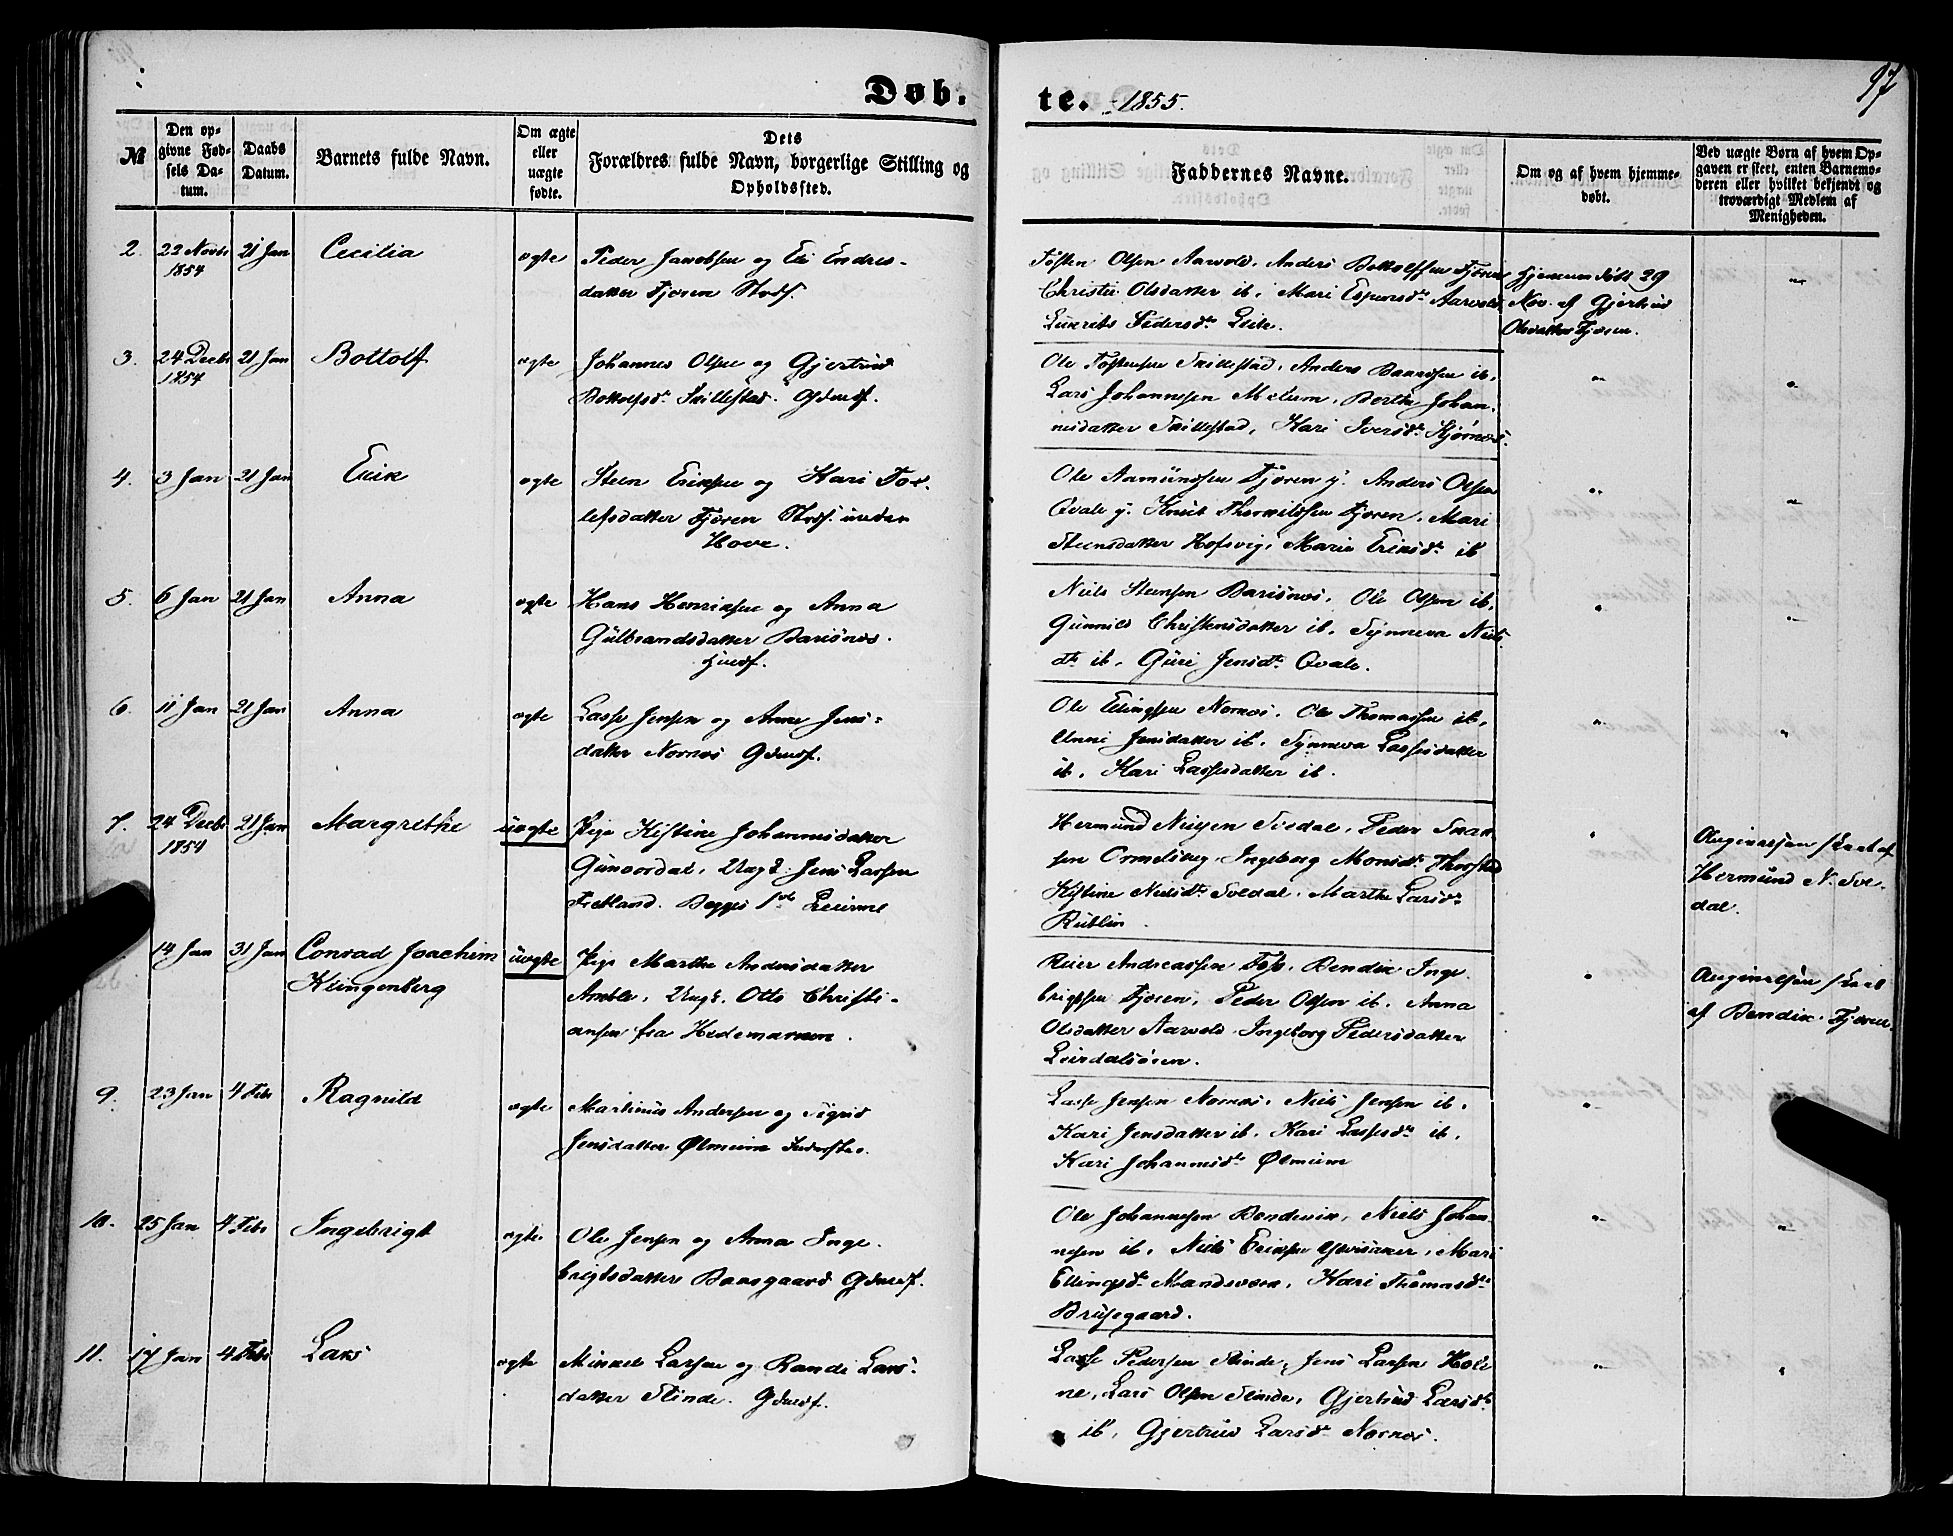 97
Døb. te. 1855.
№
Den opgivne Fødsels Datum.
Daabs Datum.
Barnets fulde Navn.
Om ægte eller uægte fødte.
Dets Forældres fulde Navn, borgerlige Stilling og Opholdssted.
Faddernes Navne.
Om og af hvem hjemmedøbt.
Ved uægte Børn af hvem Opgaven er skeet, enten Barnemoderen eller hvilket bekjendt og troværdigt Medlem af Menigheden.
2. 22 Novbr 1854 21 Jan Cecilia ægte
Peder Jacobsen og Eli Endres-
datter Fjæren Strdsf.
Olsen Aarvold, Anders Bottolfsen Fjæren
Christi Olsdatter ib, Mari Espensdt Aarvold
Pedersdt
Hjemmedøbt 29
Nov. af Gjertrud
Olsdatter Fjæren.
3. 24 Decbr 1854 21 Jan Bottolf ægte
Johannes Olsen og Gjertrud
Bottolfsdt Skillestad. Gdmdsf.
Ole Tostensen Skillestad, Anders ib,
Lars Johannesen Melum, Berthe Johan-
nesdatter Skillestad, Kari Iversdt Kjørnes.
4. 3 Jan 21 Jan Erik ægte
Steen Eriksen og Kari Tor-
lefsdatter Fjæren Strdsf. under
Hove.
Ole Aamundsen Fjæren y. Anders Olsen
Qvale y. Knud Fjæren, Mari
Steensdatter Hofsvig, Marie Eriksdt ib
5. 6 Jan 21 Jan Anna ægte
Hans Henriksen og Anna
Gulbrandsdatter Barsnes.
Niels Steensen Barsnes, Ole Olsen ib,
Gunnild Christensdatter ib, Synneva Niels
dt ib, Guri Jensdt Qvale.
6. 11 Jan 21 Jan Anna ægte
Lasse Jensen og Anne Jens-
datter Nornes Gdmdsf.
Ole Ellingsen Nornes, Ole Thomassen ib,
Anne Jensdatter ib, Synneva Lassesdatter
ib, Kari Lassesdatter ib.
7. 24 Decbr 1854 21 Jan Margrethe uægte
Pige Kistine Johannesdatter
Gunvordal, Ungk. Jens Larsen
Fretland. Begges 1ste Leierml
Hermund Nielsen Svedal, Peder
sen Ormelskrey, Ingeborg Monsdt Thorstad
Kistine Nielsdt Svedal, Marthe Larsdt
Rublin.
Angivelsen skeet af
Hermund N. Sve-
dal.
14 Jan 31 Jan Conrad Joachim
Klingenberg uægte
Pige Marthe Andersdatter
Amble, Ungk. Otto Christi-
ansen fra Hedemarken.
Reier Andreassen Foss, Bendix Inge-
brigtsen Fjæren, Peder Olsen ib, Anna
Olsdatter Aarvold, Ingeborg Pedersdatter
Leirdalsøren.
Angivelsen skeet
af Bendix Fjæren.
9. 23 Jan 4 Febr Ragnild ægte
Martinus Andersen og Sigrid
Jensdatter Ølmeim
Lasse Jensen Nornes, Niels Jensen ib.
Kari Jensdatter ib, Kari Lassesdt ib.
Kari Johannesdt Ølmeim
10. 25 Jan 4 Febr Ingebrigt ægte
Ole Jensen og Anna Inge-
brigtsdatter Gdmdsf.
Ole Johannesen Bondevik, Niels Johan-
nesen ib, Niels Eriksen Yttvisaker, Mari
Ellingsdt Kari Thomasdt
Brusegaard.
11. 17 Jan 4 Febr Lars ægte
Mikkel Larsen og Randi Lars-
datter Slinde. Gdmdsf.
Lasse Pedersen Slinde, Jens Larsen
ne, Lars Olsen Slinde, Gjertrud Larsdt
ib, Gjertrud Larsdt Nornes.